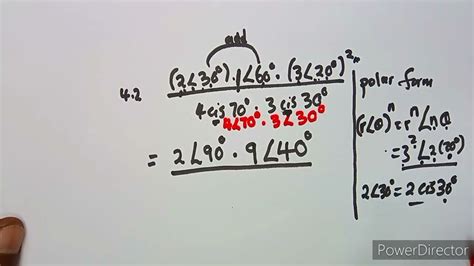 add
4.2 (2∠30°)·1∠60°·(3∠20°)²
4cis70°·3cis30°
4∠70°·3∠30°
= 2∠90°·9∠40°
polar form
(r∠θ)ⁿ = rⁿ∠nθ
= 3²∠2(20°)
2∠30° = 2cis30°
PowerDirector